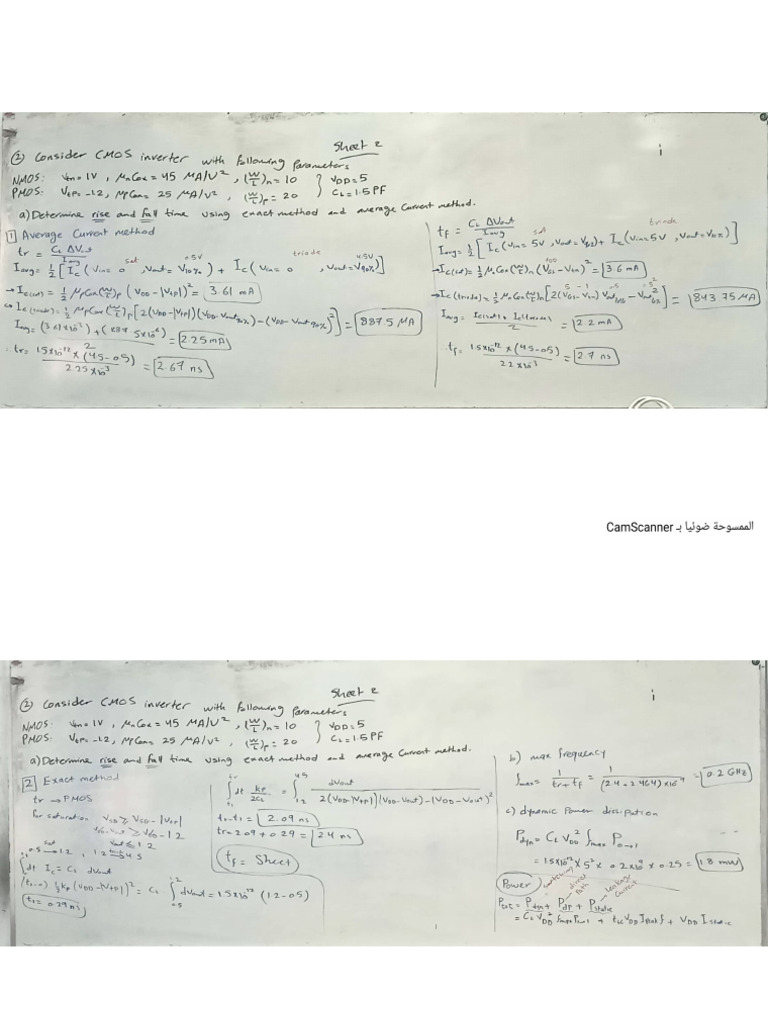 Sheet 2
② Consider CMOS inverter with following Parameters
NMOS: Vtn=1V, μnCox=45 μA/V², (W/L)n=10 } VDD=5
PMOS: Vtp=-1.2, μpCox=25 μA/V², (W/L)p=20 } CL=1.5PF
a) Determine rise and fall time using exact method and average Current method.
1 Average Current method
tr = CL ΔVout / Iavg
Iavg = 1/2 [Ic(Vin=0, Vout=V10%) + Ic(Vin=0, Vout=V90%)]
sat 0.5V triode 4.5V
→ Ic(sat) = 1/2 μpCox(W/L)p (VDD-|Vtp|)² = 3.61 mA
Ic(triode) = 1/2 μpCox(W/L)p [2(VDD-|Vtp|)(VDD-Vout90%)-(VDD-Vout90%)²] = 887.5 μA
Iavg = (3.61x10⁻³)+(887.5x10⁻⁶) / 2 = 2.25 mA
∴ tr = 1.5x10⁻¹² x (4.5-0.5) / 2.25x10⁻³ = 2.67 ns
tf = CL ΔVout / Iavg
sat triode
Iavg = 1/2 [Ic(Vin=5V, Vout=V90%) + Ic(Vin=5V, Vout=V10%)]
→ Ic(sat) = 1/2 μnCox(W/L)n (VGS-Vtn)² = 3.6 mA
→ Ic(triode) = 1/2 μnCox(W/L)n [2(VGS-Vtn)Vout10%-Vout²10%] = 843.75 μA
Iavg = Ic(sat)+Ic(triode) / 2 = 2.2 mA
∴ tf = 1.5x10⁻¹² x (4.5-0.5) / 2.2x10⁻³ = 2.7 ns
الممسوحة ضوئيا بـ CamScanner
Sheet 2
② Consider CMOS inverter with following Parameters
NMOS: Vtn=1V, μnCox=45 μA/V², (W/L)n=10 } VDD=5
PMOS: Vtp=-1.2, μpCox=25 μA/V², (W/L)p=20 } CL=1.5PF
a) Determine rise and fall time using exact method and average Current method.
2 Exact method
tr → PMOS
for saturation VSD ≥ VSG-|Vtp|
Vout ≤ 1.2
sat
0.5→1.2, 1.2→4.5
∫dt Ic = CL dVout
(t1-0) 1/2 kp (VDD-|Vtp|)² = CL ∫dVout = 1.5x10⁻¹² (1.2-0.5)
t1 = 0.29 ns
∫dt kp/2CL = ∫ dVout / 2(VDD-|Vtp|)(VDD-Vout)-(VDD-Vout)²
t2-t1 = 2.09 ns
tr = 2.09 + 0.29 = 2.4 ns
tf = Sheet
b) max frequency
fmax = 1 / tr+tf = 1 / (2.4+2.464)x10⁻⁹ = 0.2 GHz
c) dynamic Power dissipation
Pdyn = CL VDD² fmax P0→1
= 1.5x10⁻¹² x 5² x 0.2x10⁹ x 0.25 = 1.8 mW
Power (switching) direct Path leakage Current
Ptot = Pdyn + Pdp + Pstatic
= CL VDD² fmax P0→1 + tsc VDD Ipeak f + VDD Istatic